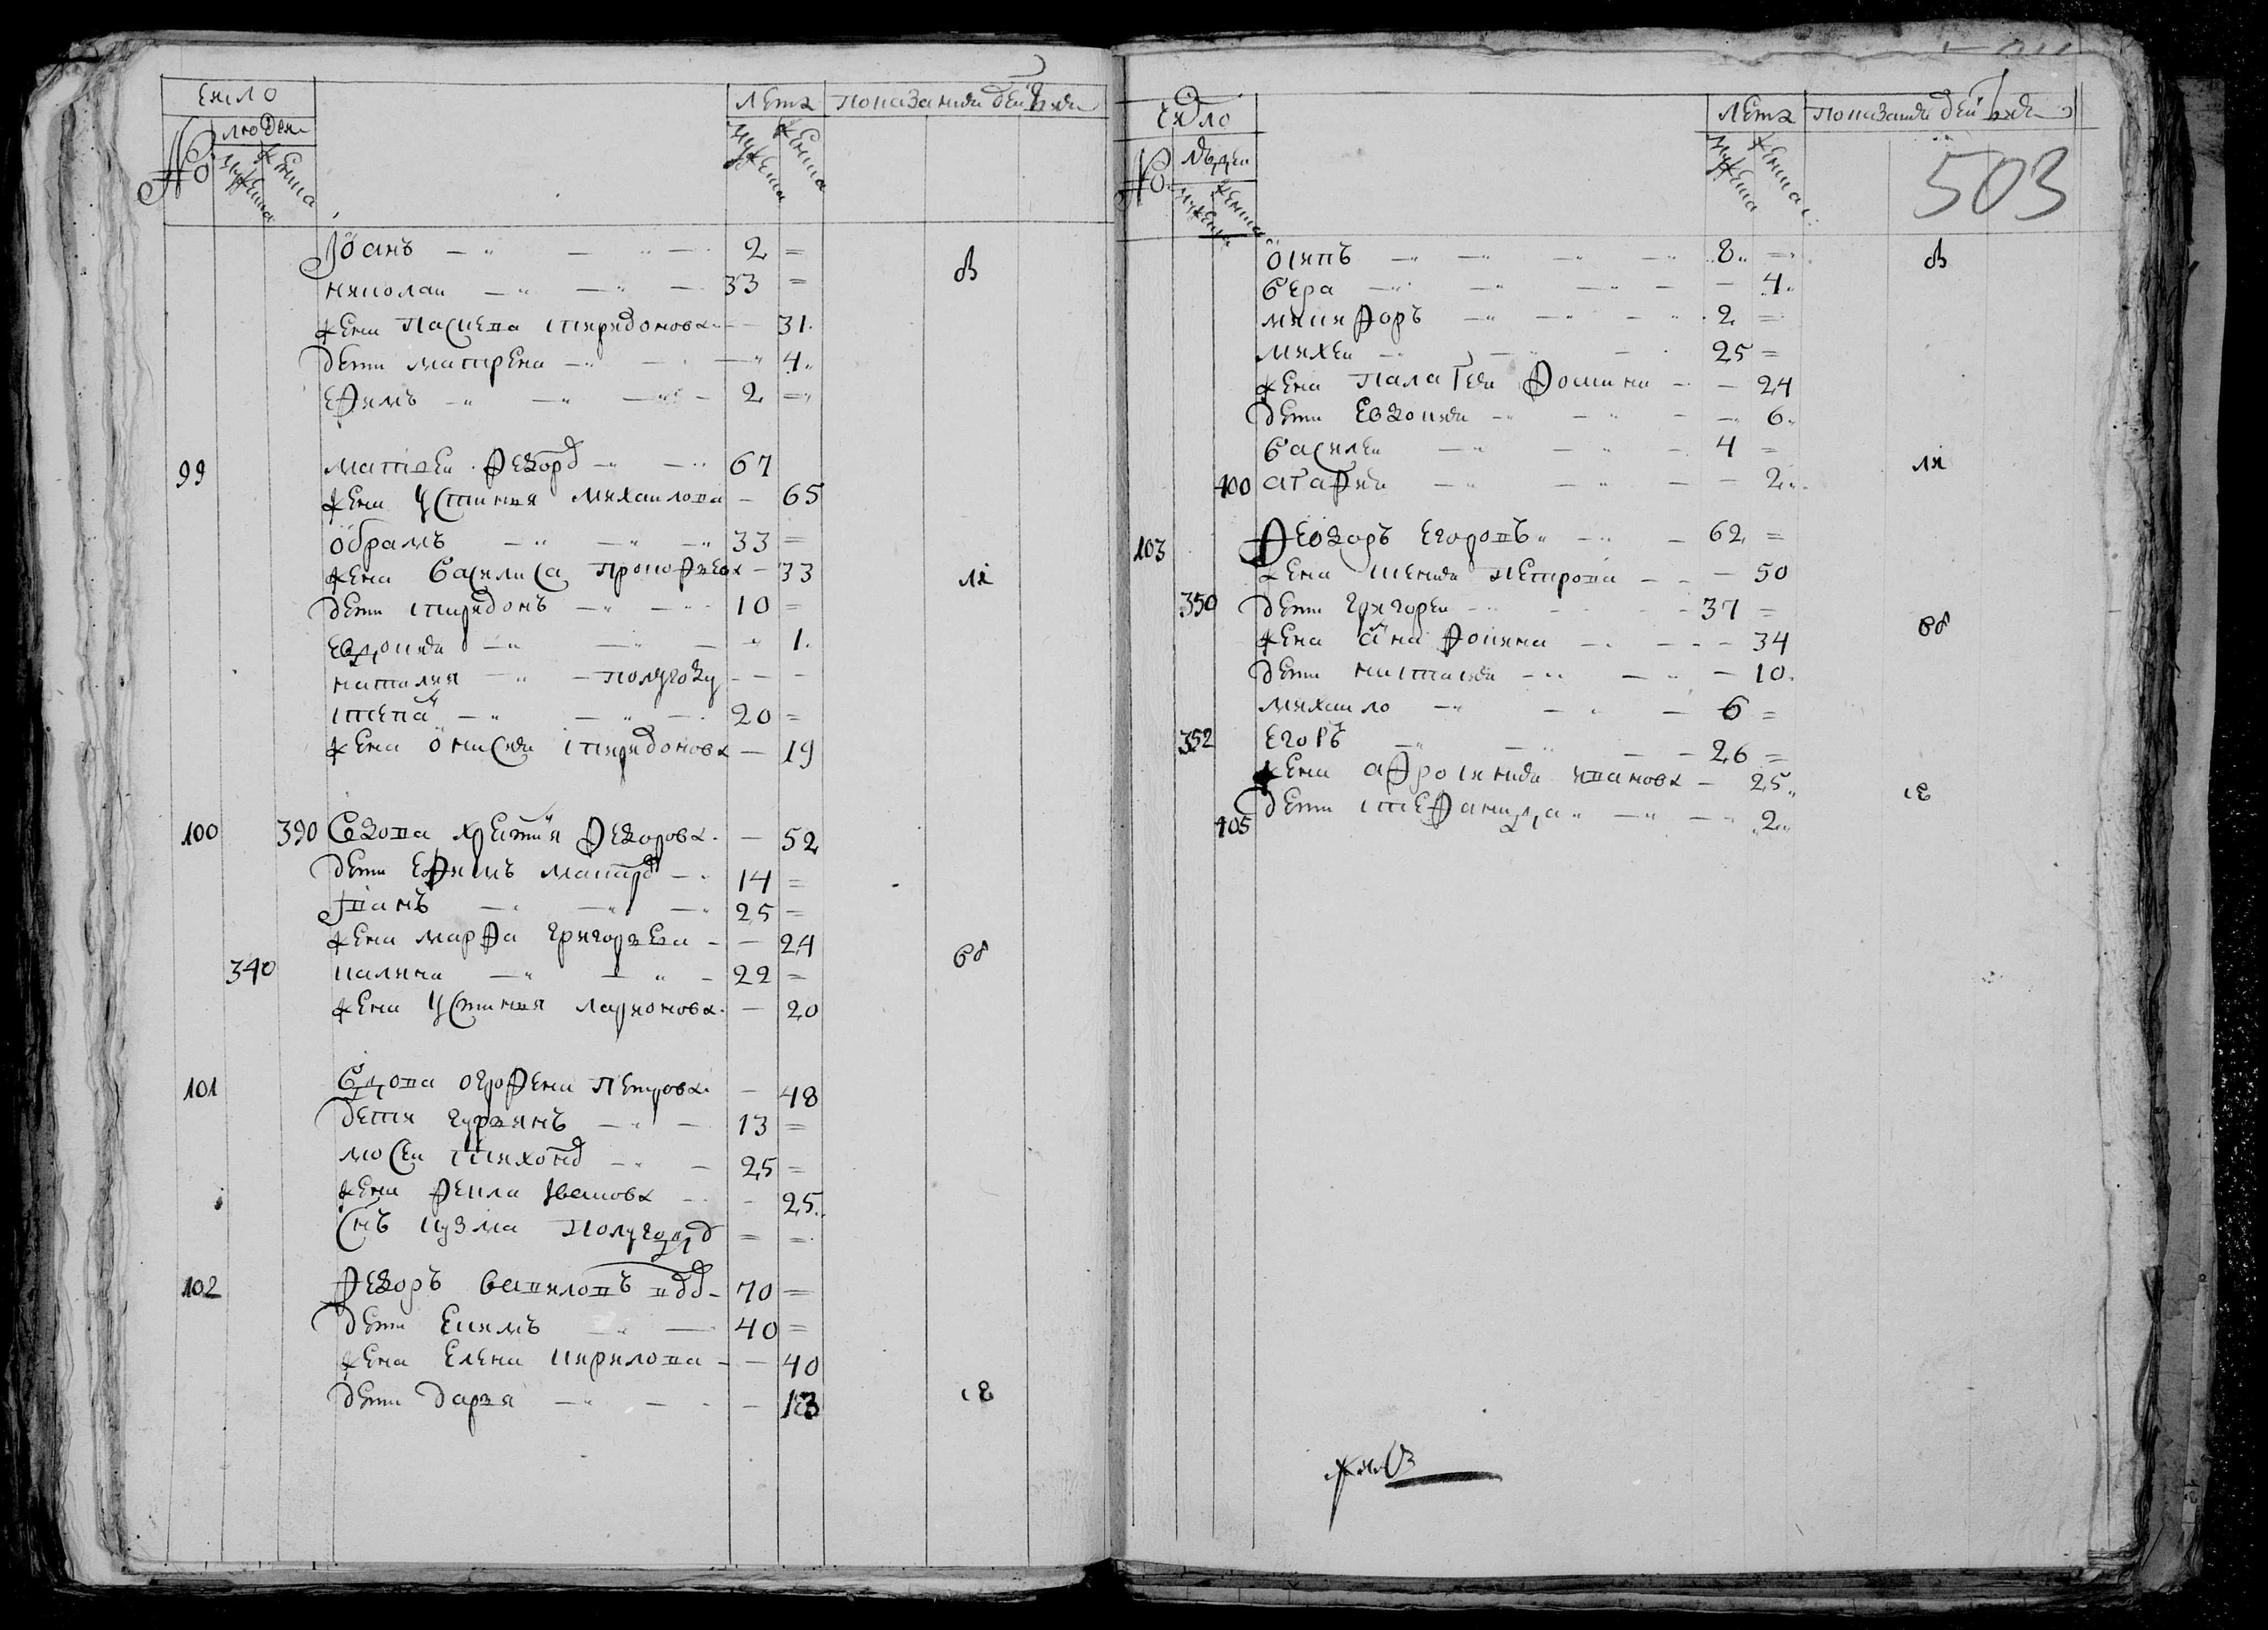 число
Лета
показание действия
№
людей
мужеска
женска
мужеска
женска
Иоанъ 2 =
николаи 33 =
жена Пелагея спиридонова 31
дети матрена 4
ефимъ 2 =
99 матвеи Федоро 67
жена устинья михаилова 65
обрамъ 33 =
жена Василиса Прокофьева 33
дети спиридонъ 10 =
евдокия 1
наталия полугоду
степа 20 =
жена онисия спиридонова 19
100 390 Вдова Федорова 52
дети ефимъ 14 =
Иванъ 25 =
жена марфа григорьева 24
340 калина 22 =
жена устинья ларионова 20
101 Вдова огрофена Петрова 48
дети гурьянъ 13 =
мосеи тихоно 25 =
жена фекла Iванова 25
снъ кузма Полугоду = =
102 Федоръ вавиловъ вдо 70 =
дети екимъ 40 =
жена елена кирилова 40
дети дарья 13
число
Лета
показание действия
№
людей
мужеска
женска
мужеска
женска
503
осипъ 8 =
Вера 4
никифоръ 2 =
михеи 25 =
жена Палагея Фомина 24
дети Евдокия 6
Василеи 4 =
400 агафия 2
103 Феодоръ егоровъ 62 =
жена Петрова 50
350 дети григореи 37 =
жена ана фокина 34
дети настасия 10
михаило 6 =
352 егоръ 26 =
жена афросиния иванова 25
405 дети стефанида 2